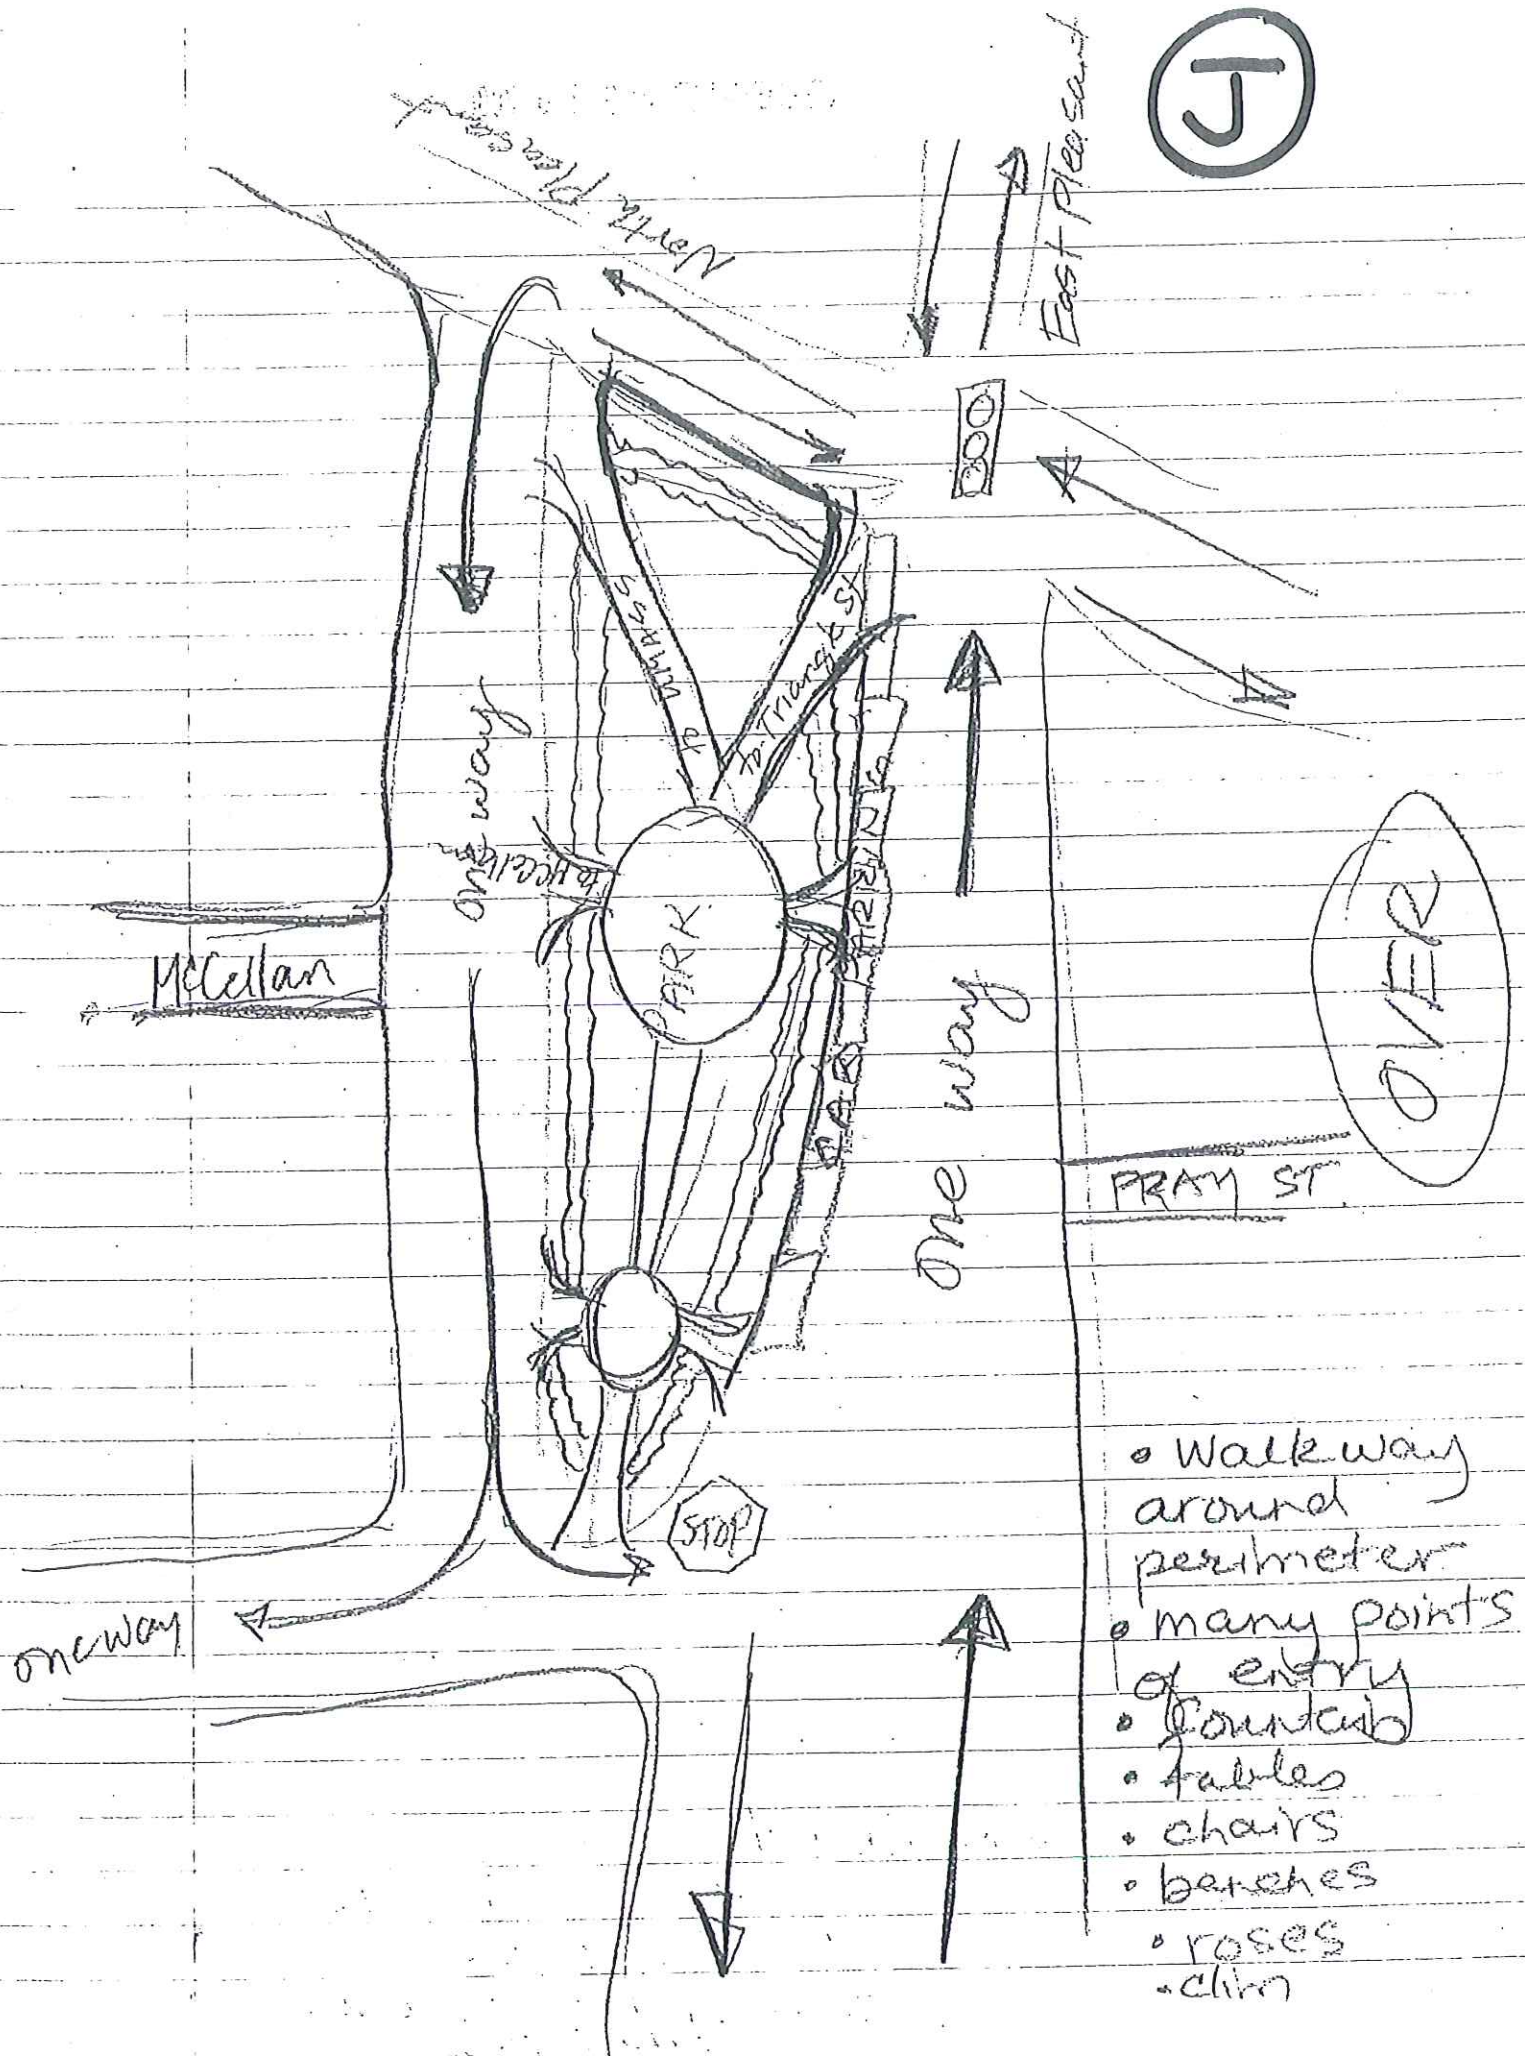 J
North Pleasant
East Pleasant
to UMASS
to Triangle St
one way
to McCellan
PARK
PARKING
McCellan
one way
OVER
PRAY ST.
STOP
one way
• Walkway
around
perimeter
• many points
of entry
• fountain
• tables
• chairs
• benches
• roses
• clim